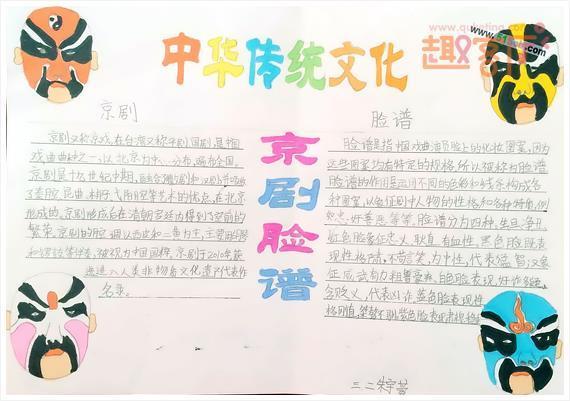 中华传统文化
京剧
京剧又称京戏，在台湾又称平剧、国剧，是中国
戏曲曲种之一，以北京为中心，分布遍布全国。
京剧是十九世纪中期，融合徽剧和汉剧，并吸收
了秦腔、昆曲、梆子、弋阳腔等艺术的优点，在北京
形成的。京剧形成后在清朝宫廷内得到了空前的
繁荣。京剧的腔调以西皮和二黄为主，主要用
和锣鼓等伴奏，被视为中国国粹，京剧于2010年获
选进入人类非物质文化遗产代表作
名录。
京剧脸谱
脸谱
脸谱是指中国戏曲演员脸上的化妆图案，因为
这些图案均有特定的规格，所以被称为脸谱
脸谱的作用是运用不同的色彩和线条构成各
种图案，以象征剧中人物的性格和各种特点，例
如忠、奸、善、恶等等。脸谱分为四种，生、旦、净、丑
红色脸象征忠义、耿直、有血性，黑色脸既表
现性格严肃，不苟言笑，为中性，代表猛智；又象
征威武有力、粗鲁豪爽，白色脸表现奸诈多疑，
含贬义，代表凶诈，蓝色脸表现性
格刚直，桀骜不驯，紫色脸表现肃穆、稳
三二朱宇